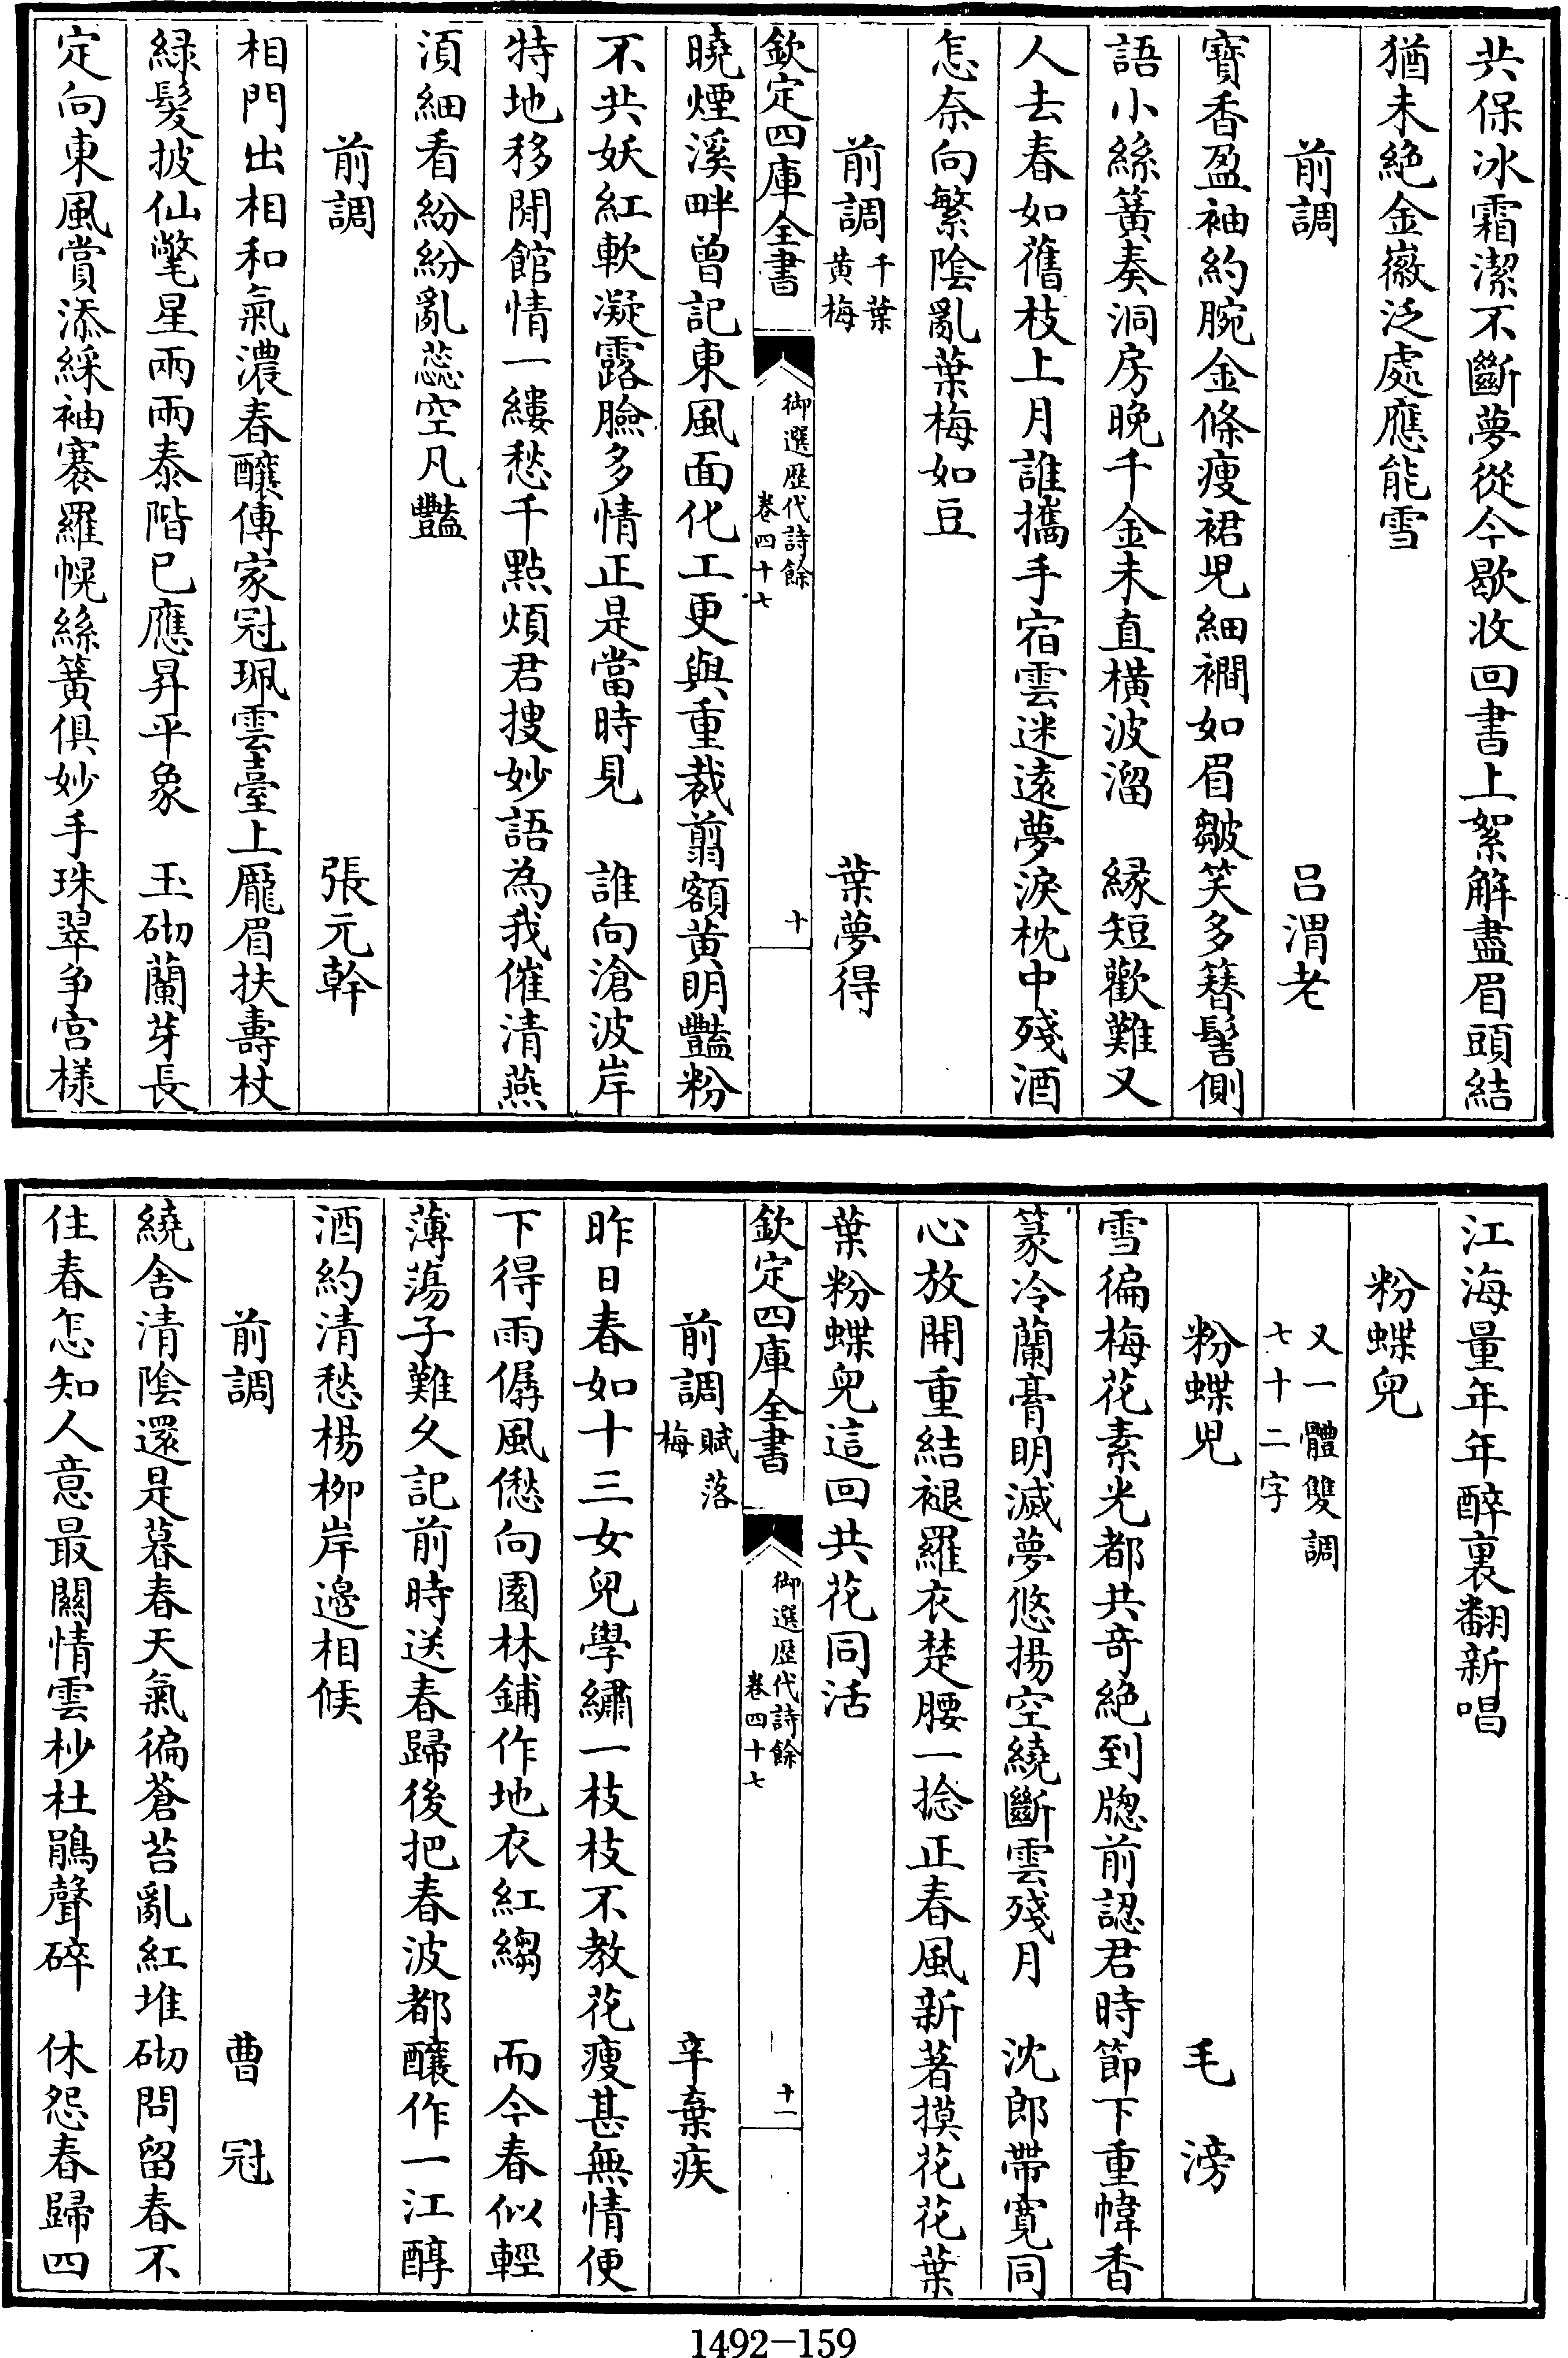 共保冰霜潔不斷夢從今歇收回書上絮解盡眉頭結
猶未絕金徽泛處應能雪
前調 呂渭老
寶香盈袖約腕金條瘦裙皃細襉如眉皺笑多簪髻側
語小絲簧奏洞房晚千金未直橫波溜 緣短歡難又
人去春如舊枝上月誰攜手宿雲迷遠夢淚枕中殘酒
怎奈向繁陰亂葉梅如豆
前調千葉黃梅 葉夢得
欽定四庫全書 御選歷代詩餘 卷四十七 十
曉煙溪畔曾記東風面化工更與重裁翦額黃明豔粉
不共妖紅軟凝露臉多情正是當時見 誰向滄波岸
特地移閒館情一縷愁千點煩君搜妙語為我催清燕
湏細看紛紛亂蕊空凡豔
前調 張元幹
相門出相和氣濃春釀傳家冠珮雲臺上龐眉扶壽杖
綠髮披仙氅星兩兩泰階已應昇平象 玉砌蘭芽長
定向東風賞添綵袖褰羅幌絲簧俱妙手珠翠爭宮樣
江海量年年醉裏翻新唱
粉蝶兒
又一體雙調七十二字
粉蝶児 毛滂
雪徧梅花素光都共奇絕到牕前認君時節下重幃香
篆冷蘭膏明滅夢悠揚空繞斷雲殘月 沈郎帶寛同
心放開重結褪羅衣楚腰一捻正春風新著摸花花葉
葉粉蝶兒這回共花同活
欽定四庫全書 御選歷代詩餘 卷四十七 十一
前調賦落梅 辛棄疾
昨日春如十三女兒學繡一枝枝不教花瘦甚無情便
下得雨僝風僽向園林鋪作地衣紅縐 而今春似輕
薄蕩子難久記前時送春歸後把春波都釀作一江醇
酒約清愁楊柳岸邊相候
前調 曹冠
繞舍清陰還是暮春天氣徧蒼苔亂紅堆砌問留春不
住春怎知人意最關情雲杪杜鵑聲碎 休怨春歸四
1492-159